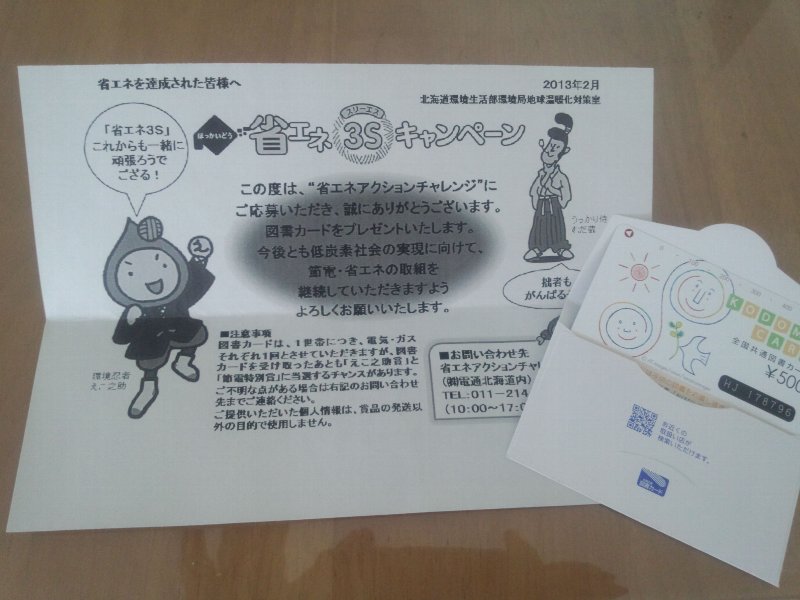 省エネを達成された皆様へ
2013年2月
北海道環境生活部環境局地球温暖化対策室
「省エネ3S」
これからも一緒に
頑張ろうで
ござる！
ほっかいどう
スリーエス
省エネ3Sキャンペーン
この度は、“省エネアクションチャレンジ”に
ご応募いただき、誠にありがとうございます。
図書カードをプレゼントいたします。
今後とも低炭素社会の実現に向けて、
節電・省エネの取組を
継続していただきますよう
よろしくお願いいたします。
うっかり侍
拙者も
がんばる
環境忍者
えこ之助
え
■注意事項
図書カードは、1世帯につき、電気・ガス
それぞれ1回とさせていただきますが、図書
カードを受け取ったあとも「えこ之助賞」と
「節電特別賞」に当選するチャンスがあります。
ご不明な点がある場合は右記のお問い合わせ
先までご連絡ください。
ご提供いただいた個人情報は、賞品の発送以
外の目的で使用しません。
■お問い合わせ先
省エネアクションチャレ
(㈱電通北海道内)
TEL:011-214
(10:00～17:0
KODOM
CAR
全国共通図書カー
¥500
HJ 178796
お近くの
取扱い店が
検索いただけます。
図書カード